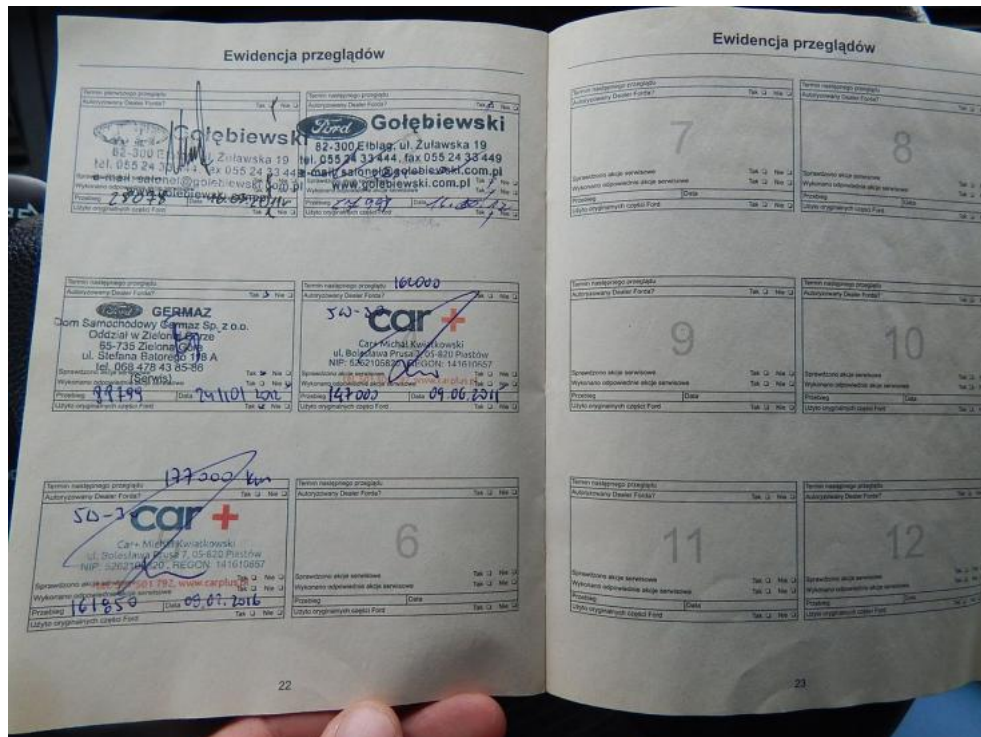 Ewidencja przeglądów
Termin pierwszego przeglądu
Autoryzowany Dealer Forda? Tak Nie
Gołębiewski
82-300 E ul. Żuławska 19
tel. 055 24 33 444, fax 055 24 33 44
e-mail: salonel@golebiewski.com.pl
www.golebiewski
Przebieg 28078 Data
Użyto oryginalnych części Ford Tak Nie
Termin następnego przeglądu
Autoryzowany Dealer Forda? Tak Nie
Ford Gołębiewski
82-300 Elbląg, ul. Żuławska 19
tel. 055 24 33 444, fax 055 24 33 449
e-mail: salonel@golebiewski.com.pl
www.golebiewski.com.pl
Przebieg Data
Użyto oryginalnych części Ford Tak Nie
Termin następnego przeglądu
Autoryzowany Dealer Forda? Tak Nie
Ford GERMAZ
Dom Samochodowy Germaz Sp. z o.o.
Oddział w Zielonej Górze
65-735 Zielona Góra
ul. Stefana Batorego 118 A
tel. 068 478 43 85-86
(Serwis)
Sprawdzono akcje serwisowe Tak Nie
Wykonano odpowiednie akcje serwisowe Tak Nie
Przebieg 88799 Data 24/01 2012
Użyto oryginalnych części Ford Tak Nie
Termin następnego przeglądu 162000
Autoryzowany Dealer Forda? Tak Nie
5W-30
car +
Car+ Michał Kwiatkowski
ul. Bolesława Prusa 7, 05-820 Piastów
NIP: 5262105820, REGON: 141610657
www.carplus.pl
Przebieg 147000 Data 09.06.2015
Użyto oryginalnych części Ford Tak Nie
Termin następnego przeglądu 177000 km
Autoryzowany Dealer Forda? Tak Nie
5W-3
car +
Car+ Michał Kwiatkowski
ul. Bolesława Prusa 7, 05-820 Piastów
NIP: 5262105820, REGON: 141610657
501 792, www.carplus.pl
Przebieg 161850 Data 09.07.2016
Użyto oryginalnych części Ford Tak Nie
Termin następnego przeglądu
Autoryzowany Dealer Forda? Tak Nie
6
Sprawdzono akcje serwisowe Tak Nie
Wykonano odpowiednie akcje serwisowe Tak Nie
Przebieg Data
Użyto oryginalnych części Ford Tak Nie
22
Ewidencja przeglądów
Termin następnego przeglądu
Autoryzowany Dealer Forda? Tak Nie
7
Sprawdzono akcje serwisowe Tak Nie
Wykonano odpowiednie akcje serwisowe Tak Nie
Przebieg Data
Użyto oryginalnych części Ford Tak Nie
Termin następnego przeglądu
Autoryzowany Dealer Forda? Tak
8
Sprawdzono akcje serwisowe
Wykonano odpowiednie akcje serwisowe Tak
Przebieg Data
Użyto oryginalnych części Ford Tak
Termin następnego przeglądu
Autoryzowany Dealer Forda? Tak Nie
9
Sprawdzono akcje serwisowe Tak Nie
Wykonano odpowiednie akcje serwisowe Tak Nie
Przebieg Data
Użyto oryginalnych części Ford Tak Nie
Termin następnego przeglądu
Autoryzowany Dealer Forda? Tak
10
Sprawdzono akcje serwisowe Tak
Wykonano odpowiednie akcje serwisowe Tak
Przebieg Data
Użyto oryginalnych części Ford Tak
Termin następnego przeglądu
Autoryzowany Dealer Forda? Tak Nie
11
Sprawdzono akcje serwisowe Tak Nie
Wykonano odpowiednie akcje serwisowe Tak Nie
Przebieg Data
Użyto oryginalnych części Ford Tak Nie
Termin następnego przeglądu
Autoryzowany Dealer Forda? Tak
12
Sprawdzono akcje serwisowe Tak
Wykonano odpowiednie akcje serwisowe Tak
Przebieg Data
Użyto oryginalnych części Ford
23